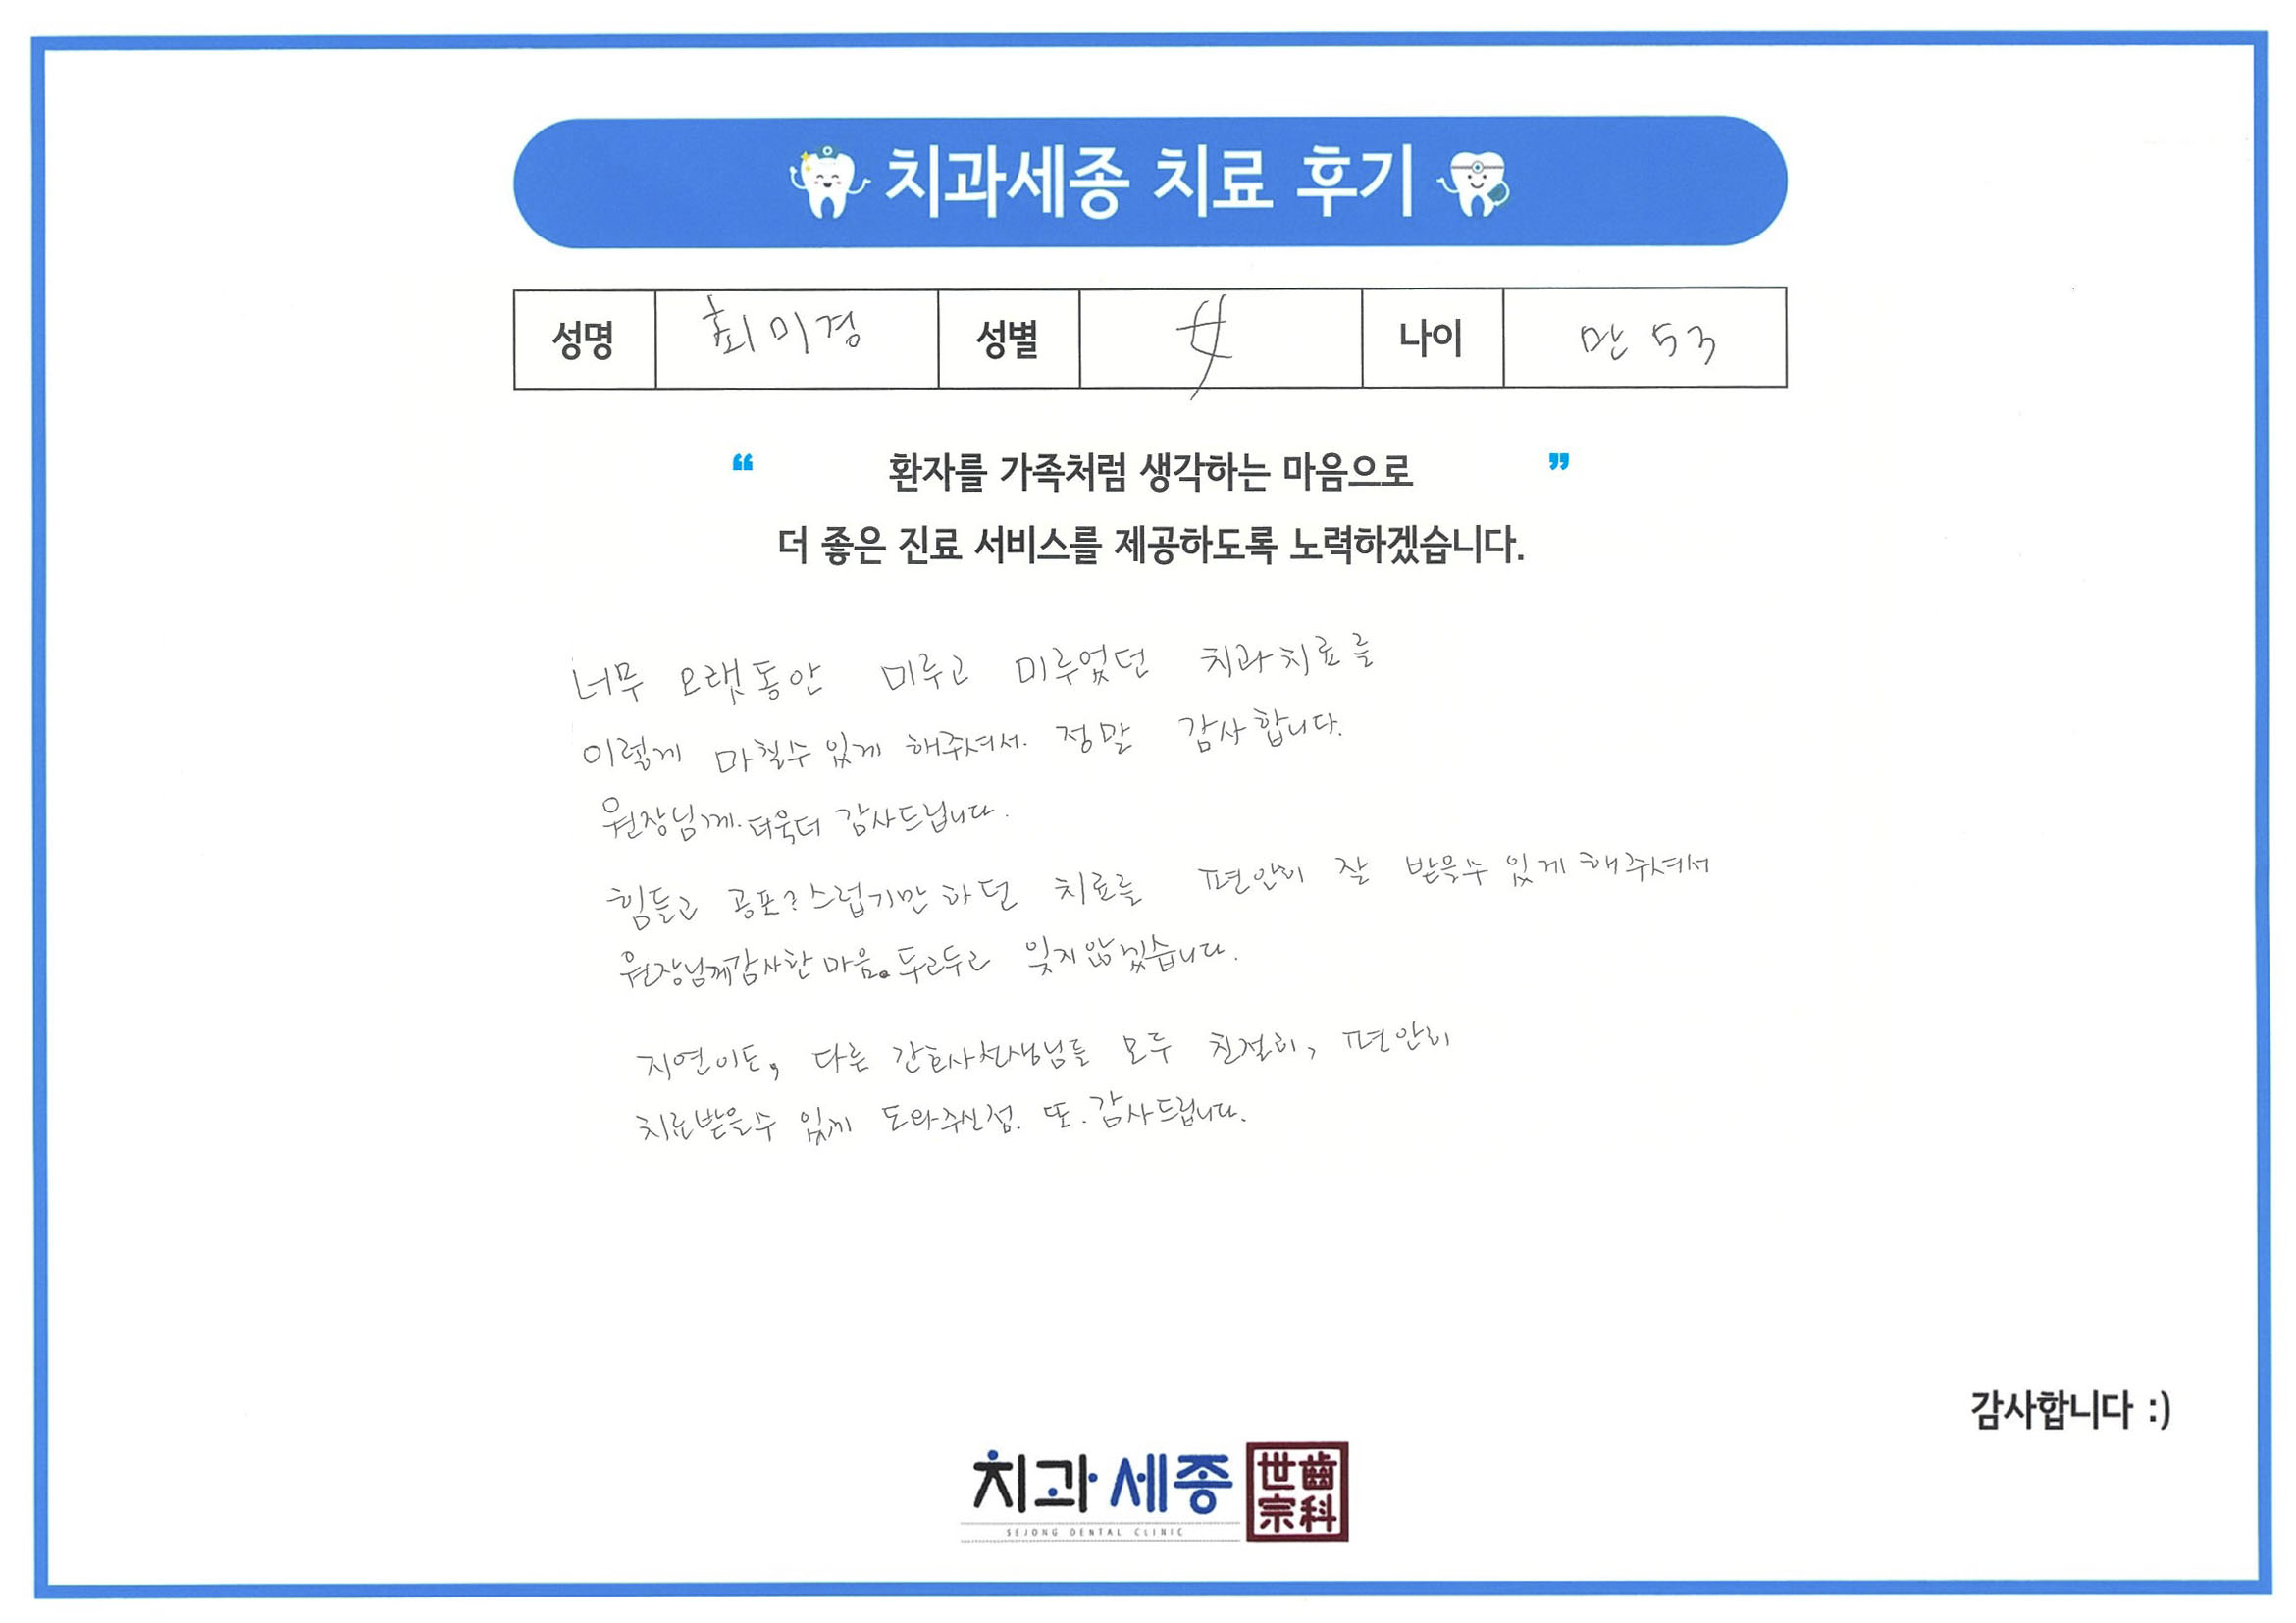 치과세종 치료 후기
성명 최미경 성별 女 나이 만 53
“ 환자를 가족처럼 생각하는 마음으로 ”
더 좋은 진료 서비스를 제공하도록 노력하겠습니다.
너무 오랫동안 미루고 미루었던 치과치료를
이렇게 마칠수 있게 해주셔서. 정말 감사합니다.
원장님께. 더욱더 감사드립니다.
힘들고 공포?스럽기만 하던 치료를 편안히 잘 받을수 있게 해주셔서
원장님께감사한 마음. 두고두고 잊지않겠습니다.
지연이도, 다른 간호사선생님들 모두 친절히, 편안히
치료받을수 있께 도와주신점. 또. 감사드립니다.
감사합니다 :)
치과세종 世齒宗科
SEJONG DENTAL CLINIC